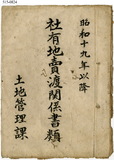 昭和十九年以降
社有地賣渡関係書類
土地管理課